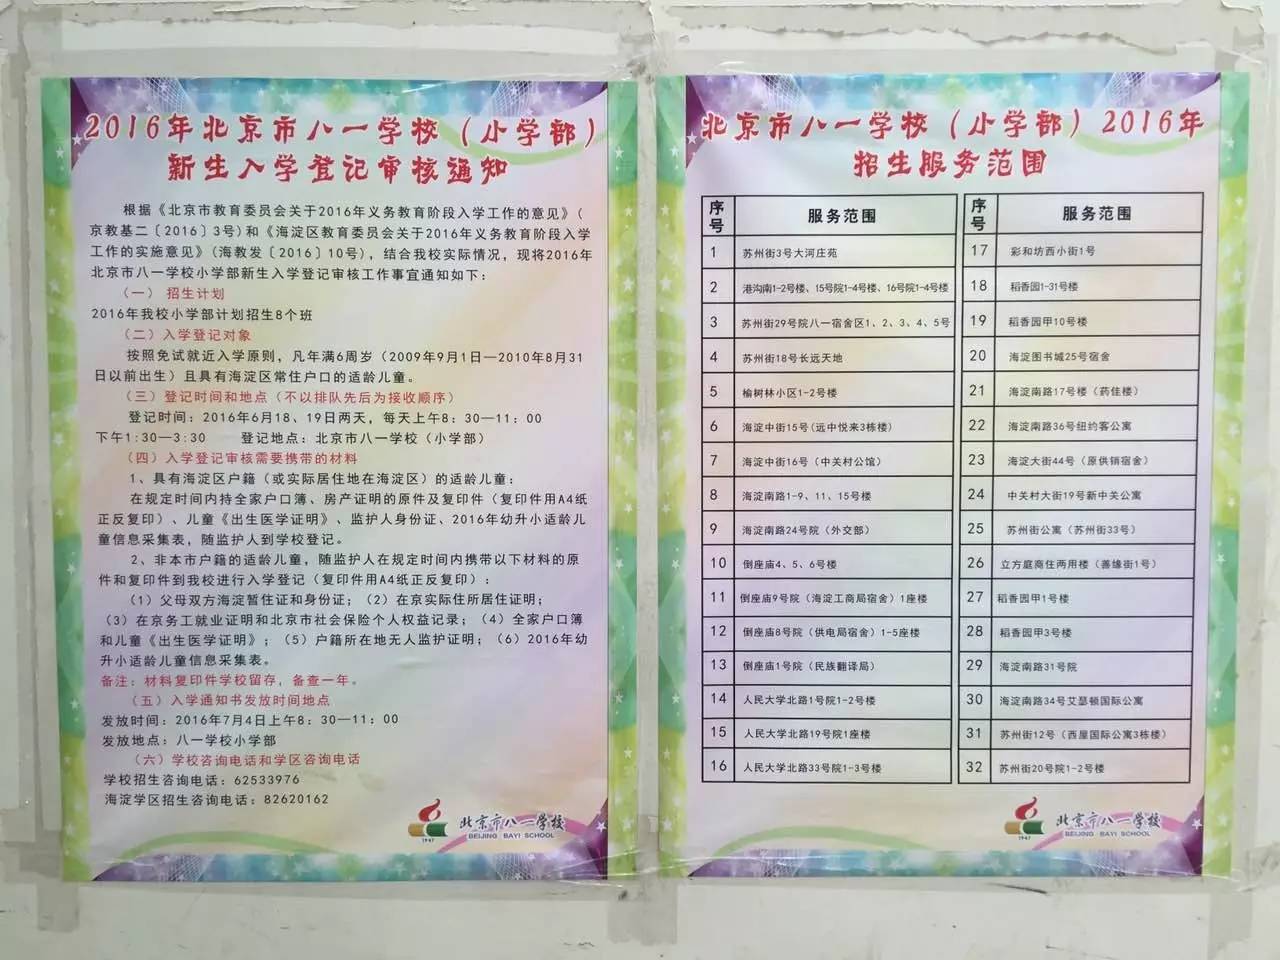 2016年北京市八一学校（小学部）
新生入学登记审核通知
根据《北京市教育委员会关于2016年义务教育阶段入学工作的意见》（
京教基二〔2016〕3号)和《海淀区教育委员会关于2016年义务教育阶段入学
工作的实施意见》（海教发〔2016〕10号)，结合我校实际情况，现将2016年
北京市八一学校小学部新生入学登记审核工作事宜通知如下：
（一） 招生计划
2016年我校小学部计划招生8个班
（二）入学登记对象
按照免试就近入学原则，凡年满6周岁（2009年9月1日—2010年8月31
日以前出生）且具有海淀区常住户口的适龄儿童。
（三）登记时间和地点（不以排队先后为接收顺序）
登记时间：2016年6月18、19日两天，每天上午8：30—11：00
下午1:30—3:30 登记地点：北京市八一学校（小学部）
（四）入学登记审核需要携带的材料
1、具有海淀区户籍（或实际居住地在海淀区）的适龄儿童：
在规定时间内持全家户口簿、房产证明的原件及复印件（复印件用A4纸
正反复印）、儿童《出生医学证明》、监护人身份证、2016年幼升小适龄儿
童信息采集表，随监护人到学校登记。
2、非本市户籍的适龄儿童，随监护人在规定时间内携带以下材料的原
件和复印件到我校进行入学登记（复印件用A4纸正反复印）：
（1）父母双方海淀暂住证和身份证；（2）在京实际住所居住证明；
（3）在京务工就业证明和北京市社会保险个人权益记录；（4）全家户口簿
和儿童《出生医学证明》；（5）户籍所在地无人监护证明；（6）2016年幼
升小适龄儿童信息采集表。
备注：材料复印件学校留存，备查一年。
（五）入学通知书发放时间地点
发放时间：2016年7月4日上午8：30—11：00
发放地点：八一学校小学部
（六）学校咨询电话和学区咨询电话
学校招生咨询电话：62533976
海淀学区招生咨询电话：82620162
1947
北京市八一学校
BEIJING BAYI SCHOOL
北京市八一学校（小学部）2016年
招生服务范围
序号 服务范围
1 苏州街3号大河庄苑
2 港沟南1-2号楼、15号院1-4号楼、16号院1-4号楼
3 苏州街29号院八一宿舍区1、2、3、4、5号
4 苏州街18号长远天地
5 榆树林小区1-2号楼
6 海淀中街15号(远中悦来3栋楼)
7 海淀中街16号（中关村公馆）
8 海淀南路1-9、11、15号楼
9 海淀南路24号院（外交部）
10 倒座庙4、5、6号楼
11 倒座庙9号院（海淀工商局宿舍）1座楼
12 倒座庙8号院（供电局宿舍）1-5座楼
13 倒座庙1号院（民族翻译局）
14 人民大学北路1号院1-2号楼
15 人民大学北路19号院1座楼
16 人民大学北路33号院1-3号楼
序号 服务范围
17 彩和坊西小街1号
18 稻香园1-31号楼
19 稻香园甲10号楼
20 海淀图书城25号宿舍
21 海淀南路17号楼（药佳楼）
22 海淀南路36号纽约客公寓
23 海淀大街44号（原供销宿舍）
24 中关村大街19号新中关公寓
25 苏州街公寓（苏州街33号）
26 立方庭商住两用楼（善缘街1号）
27 稻香园甲1号楼
28 稻香园甲3号楼
29 海淀南路31号院
30 海淀南路34号艾瑟顿国际公寓
31 苏州街12号（西屋国际公寓3栋楼）
32 苏州街20号院1-2号楼
1947
北京市八一学校
BEIJING BAYI SCHOOL